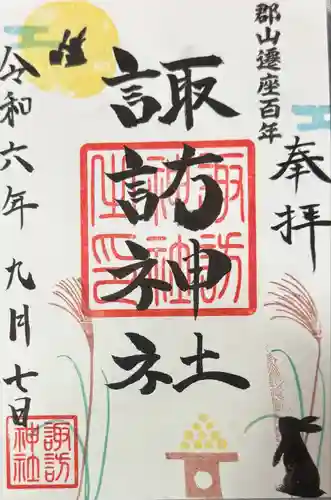 郡山遷座百年
奉拝
諏訪神社
令和六年九月七日
諏訪
神社